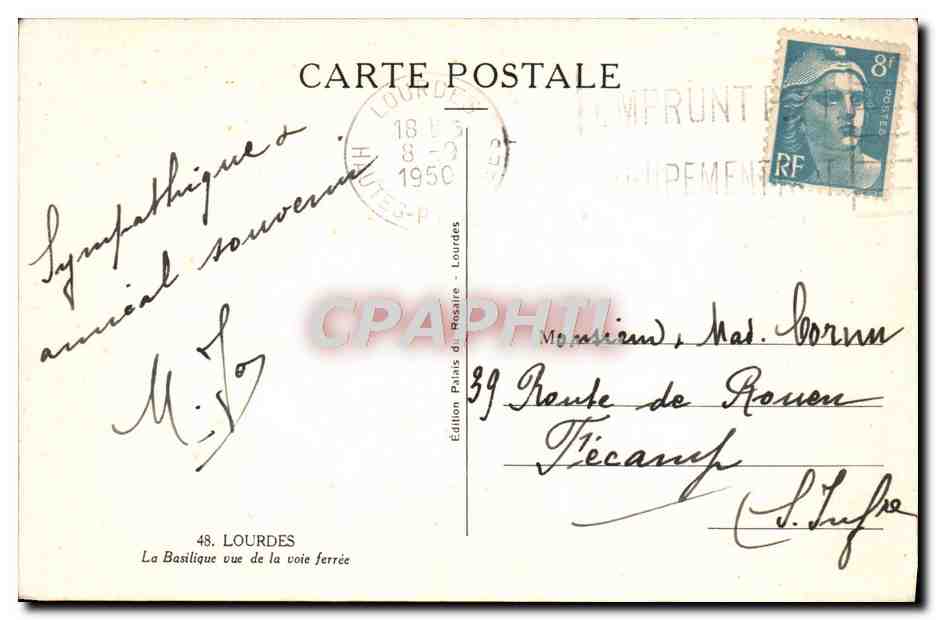 CARTE POSTALE
LOURDES
18 H
8 - 9
1950
HAUTES-P
EMPRUNT
UPEMENT
8f
POSTES
RF
Sympathique &
amical souvenir.
M. Jo
Édition Palais du Rosaire - Lourdes
CPAPHIL
Monsieur & Mad. Cornu
39 Route de Rouen
Fécamp
(S. Infre
48. LOURDES
La Basilique vue de la voie ferrée